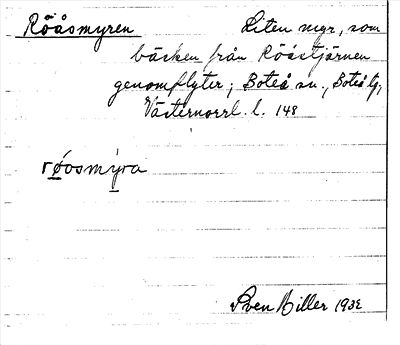 Röåsmyren Liten myr, som
bäcken från Röåstjärnen
genomflyter; Boteå sn., Boteå tg,
Västernorrl. l. 148
røosmyra
Sven Hiller 1932